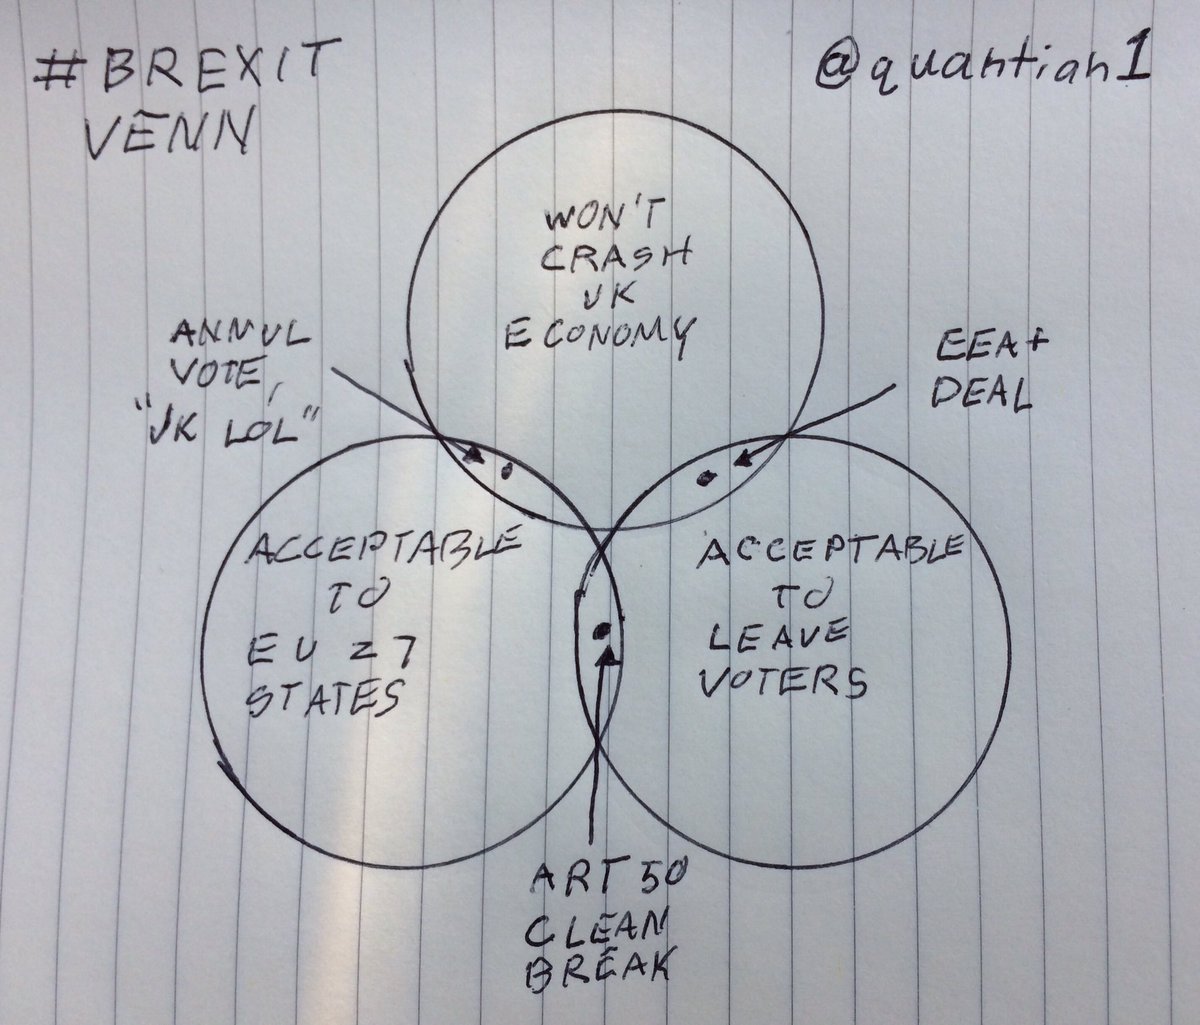 #BREXIT
VENN
@quantian1
WON'T
CRASH
UK
ECONOMY
ANNUL
VOTE,
"UK LOL"
EEA+
DEAL
ACCEPTABLE
TO
EU 27
STATES
ACCEPTABLE
TO
LEAVE
VOTERS
ART 50
CLEAN
BREAK